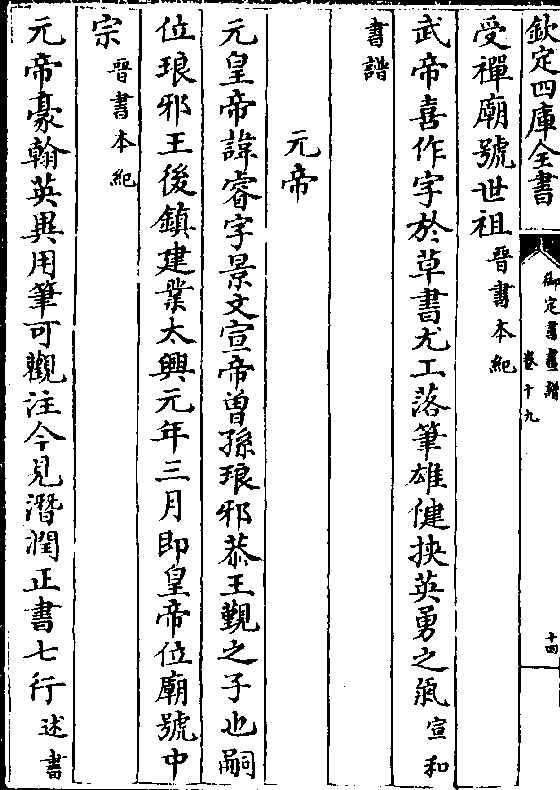 欽定四庫全書
御定書畫譜
卷十九
十四
受禪廟號世祖晉書本紀
武帝喜作字於草書尤工落筆雄健挾英勇之氣宣和
書譜
元帝
元皇帝諱睿字景文宣帝曾孫琅邪恭王覲之子也嗣
位琅邪王後鎮建業太興元年三月即皇帝位廟號中
宗晉書本紀
元帝豪翰英異用筆可觀注今見潛潤正書七行述書